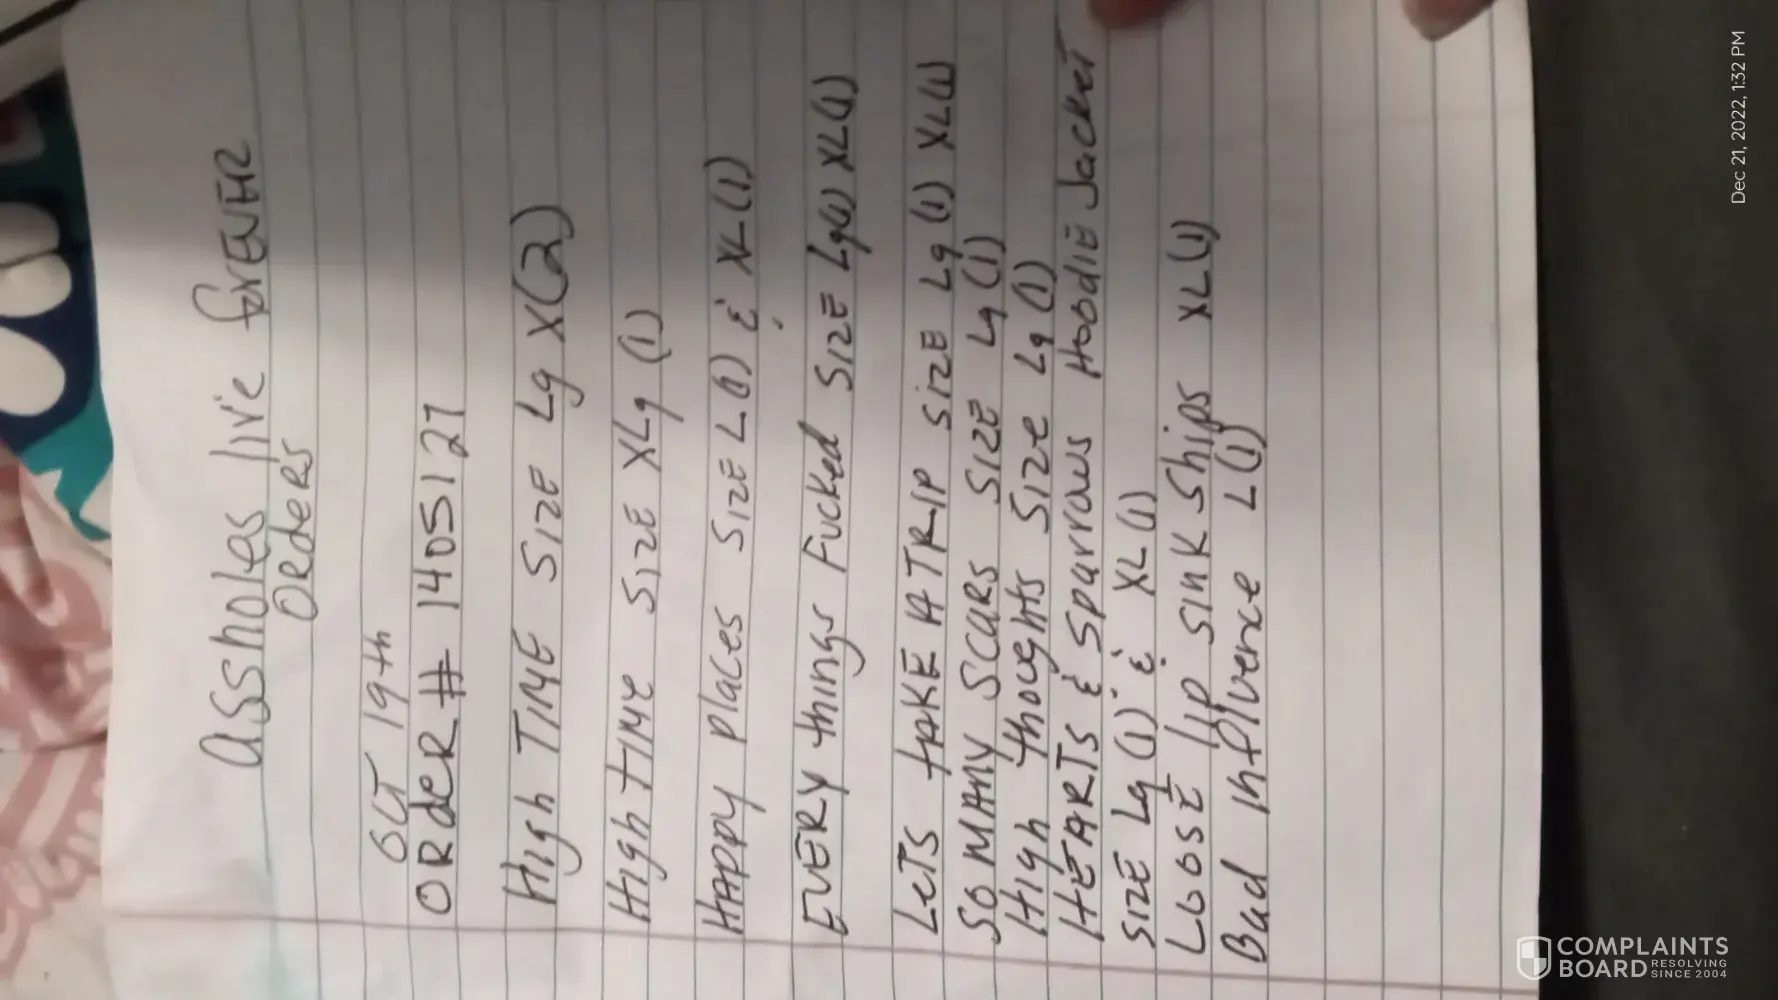 assholes live forEVER
Orders
Oct 19th
ORdER # 1405127
High TIME SIZE Lg X(2)
High TIME SIZE XLg (1)
HAPPY places SIZE L(1) & XL(1)
EVERY things Fucked SIZE Lg(1) XL(1)
LeTS tAKE A TRIP SIZE Lg (1) XL(1)
SO MANY Scars SIZE Lg (1)
High thoughts Size Lg (1)
HEARTS & Sparrows HoodIE Jacket
SIZE Lg (1) & XL(1)
LOOSE lip sink Ships XL(1)
Bad influence L(1)
Dec 21, 2022, 1:32 PM
COMPLAINTS
BOARD RESOLVING SINCE 2004